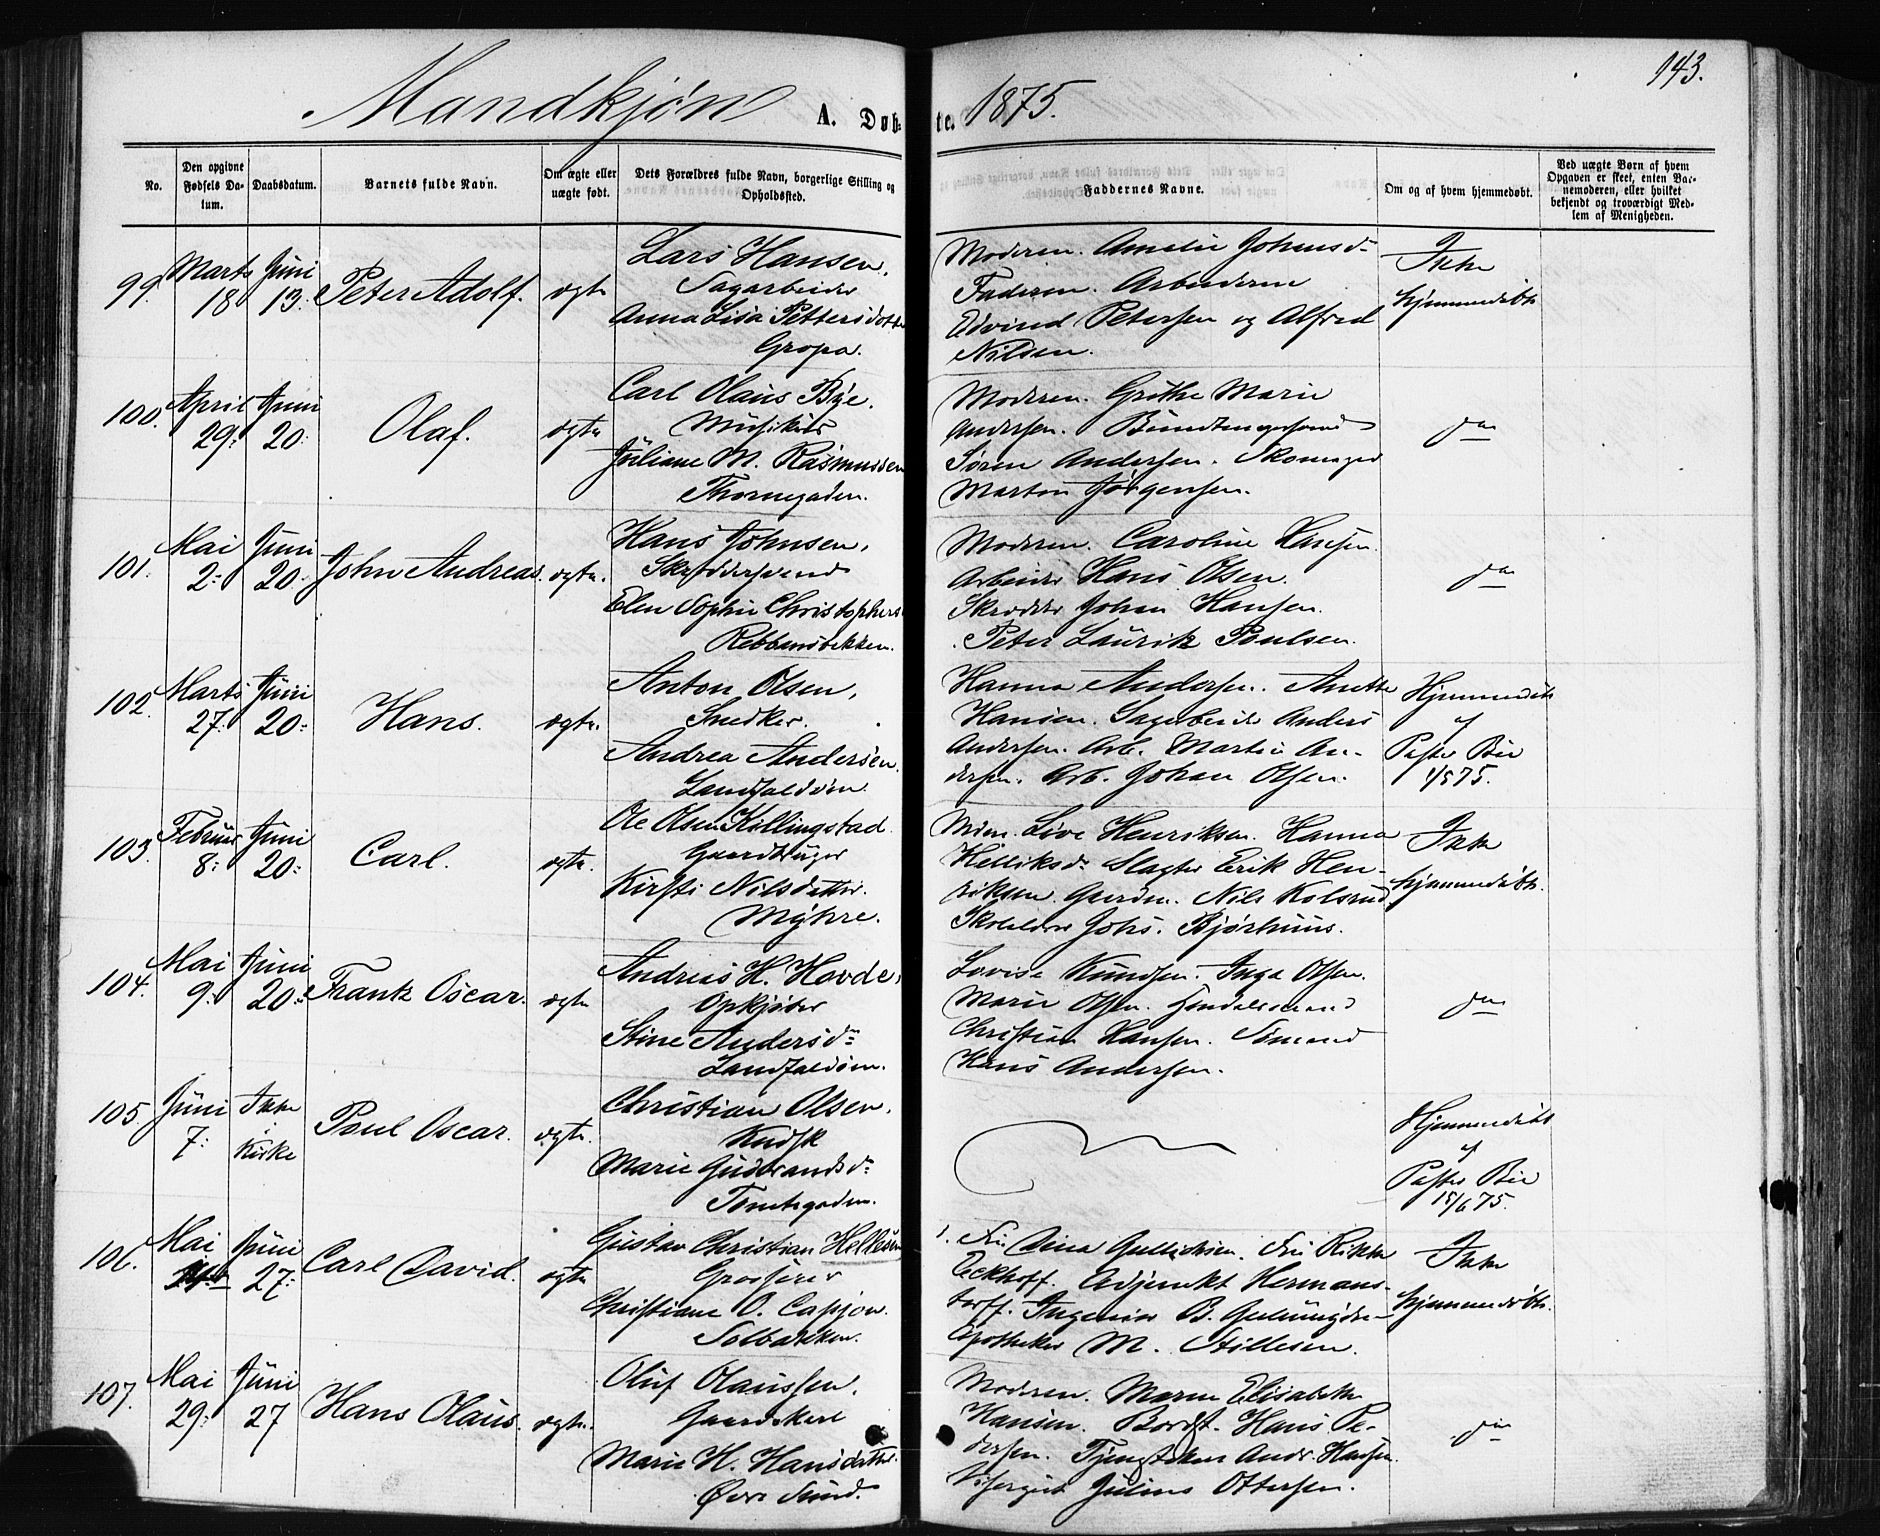 143.
Mandkjøn A. Døbte. 1875.
No.
Den opgivne Fødsels Datum.
Daabsdatum.
Barnets fulde Navn.
Om ægte eller uægte født.
Dets Forældres fulde Navn, borgerlige Stilling og Opholdssted.
Faddernes Navne.
Om og af hvem hjemmedøbt.
Ved uægte Børn af hvem Opgaven er skeet, enten Barnemoderen, eller hvilket bekjendt og troværdigt Medlem af Menigheden.
99.
Marts 18
Juni 13:
Peter Adolf.
ægte
Lars Hansen,
Sagarbeider
Anna Lisa Pettersdotter
Gropa.
Moderen. Amalie Johansd:
Faderen. Arbeiderne
Edvind Petersen og Alfred
Nilsen.
Ikke
hjemmedøbt
100.
April 29:
Juni 20:
Olaf.
ægte
Carl Olaus Bye.
Musiker
Juliane M. Rasmussen
Thornegaden.
Moderen. Grethe Marie
Andersen. Bundtmagersvend
Søren Andersen. Skomager
Marton Jørgensen.
do
101.
Mai 2:
Juni 20:
John Andreas.
ægte.
Hans Johnsen,
Skræddersvend
Elen Sophie Christophers
Rebbansbakken.
Moderen. Caroline Hansen.
Arbeider Hans Olsen.
Skræder Johan Hansen.
Peter Lauritz Poulsen.
do
102.
Marts 27:
Juni 20:
Hans.
ægte.
Anton Olsen,
Snedker.
Andrea Andersen.
Landfaldøen.
Hanna Andersen. Anette
Hansen. Sagarbeider Anders
Andersen. Arb. Martin An-
dersen. Arb. Johan Olsen.
Hjemmedøbt
af
Pastor Bie
1/5 75.
103.
Februar 8:
Juni 20:
Carl.
ægte.
Ole Olsen Killingstad
Gaardbruger
Kirsti Nilsdatter.
Myhre.
Mdm. Live Henriksen. Hanna
Helliksd: Slagter Erik Hen-
riksen. Gaardm. Nils Kolsrud
Skoleholder Johs. Bjørhuus.
Ikke
hjemmedøbt.
104.
Mai 9:
Juni 20:
Frantz Oscar.
ægte
Andreas H. Hovde,
Opkjøber
Stine Andersd:
Landfaldøen.
Lovise Knudsen. Inga Olsen.
Marie Olsen. Handelsmand
Christian Hansen. Sømand
Hans Andersen.
do
105.
Juni 7:
Ikke i Kirke
Poul Oscar.
ægte.
Christian Olsen.
Kudsk
Marie Gudbrandsd:
Tomtegaden.
Hjemmedøbt
af
Pastor Bie
15/6 75.
106.
Mai
Juni 27:
Carl David.
ægte
Gustav Christian Hellesen
Grosserer
Christiane O. Capjon.
Solbakken.
Fru Dina Gulliksen. Fru Rikke
Eckhoff. Adjunkt Hermans-
torff. Ingeniør B.
Apotheker M. Stillesen.
Ikke
hjemmedøbt.
107.
Mai 29:
Juni 27
Hans Olaus.
ægte.
Oluf Olaussen.
Gaardskarl
Marie H. Hansdatter.
Øvre Sund.
Moderen. Maren Elisabeth
Hansen. Bordt. Hans Pe-
dersen. Tjenestekarl Andr. Hansen
Visergut Julius Ottersen.
do